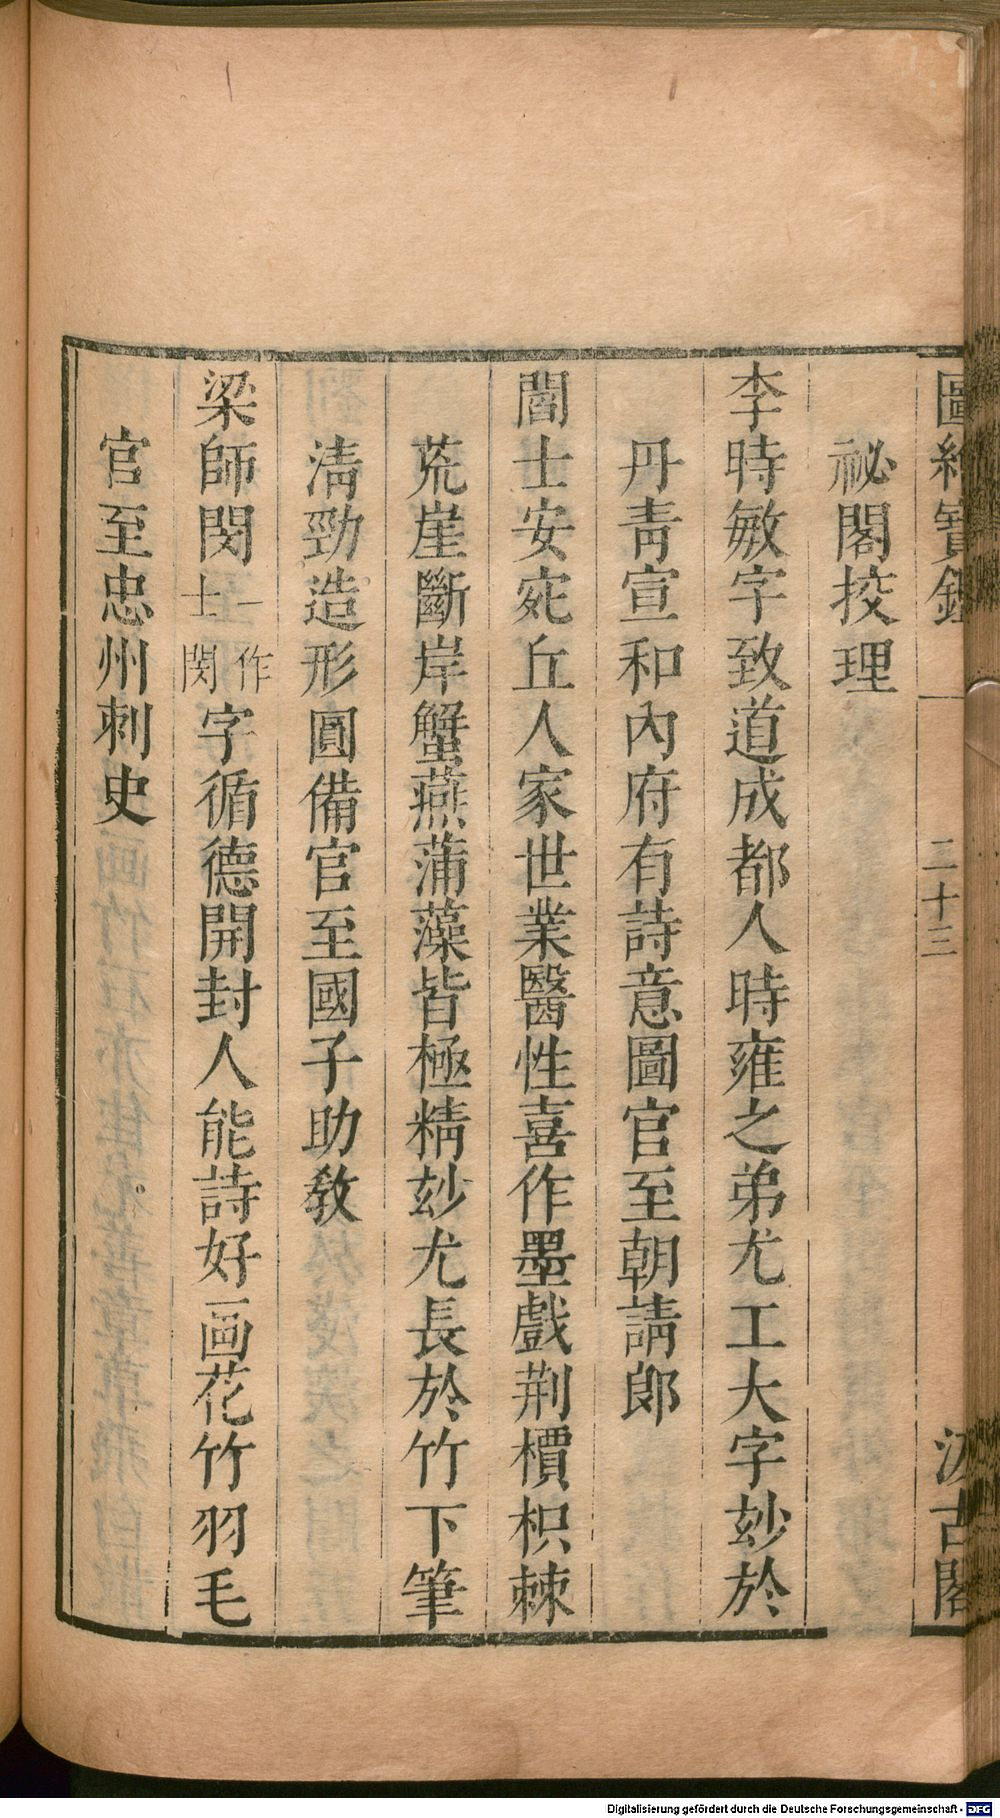 圖繪寶鑑 二十三 汲古閣
祕閣挍理
李時敏字致道成都人時雍之弟尤工大字玅於
丹靑宣和內府有詩意圖官至朝請郞
閻士安宛丘人家世業醫性喜作墨戲荆檟枳棘
荒崖斷岸蟹燕蒲藻皆極精玅尤長於竹下筆
淸勁造形圓備官至國子助敎
梁師閔一作士閔字循德開封人能詩好画花竹羽毛
官至忠州刺史
Digitalisierung gefördert durch die Deutsche Forschungsgemeinschaft - DFG